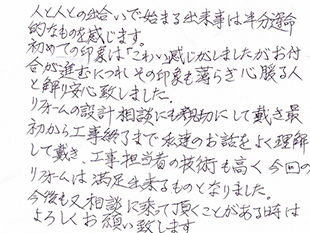 人と人との出合いで始まる出来事は半分運命
的なものを感じます。
初めての印象は「こわい」感じがしましたがお付
合が進むにつれその印象も薄らぎ心暖る人
と解り安心致しました。
リフォームの設計相談にも親切にして戴き最
初から工事終了まで私達のお話をよく理解
して戴き、工事担当者の技術も高く今回の
リフォームは満足出来るものとなりました。
今後も又相談に乗って頂くことがある時は
よろしくお願い致します